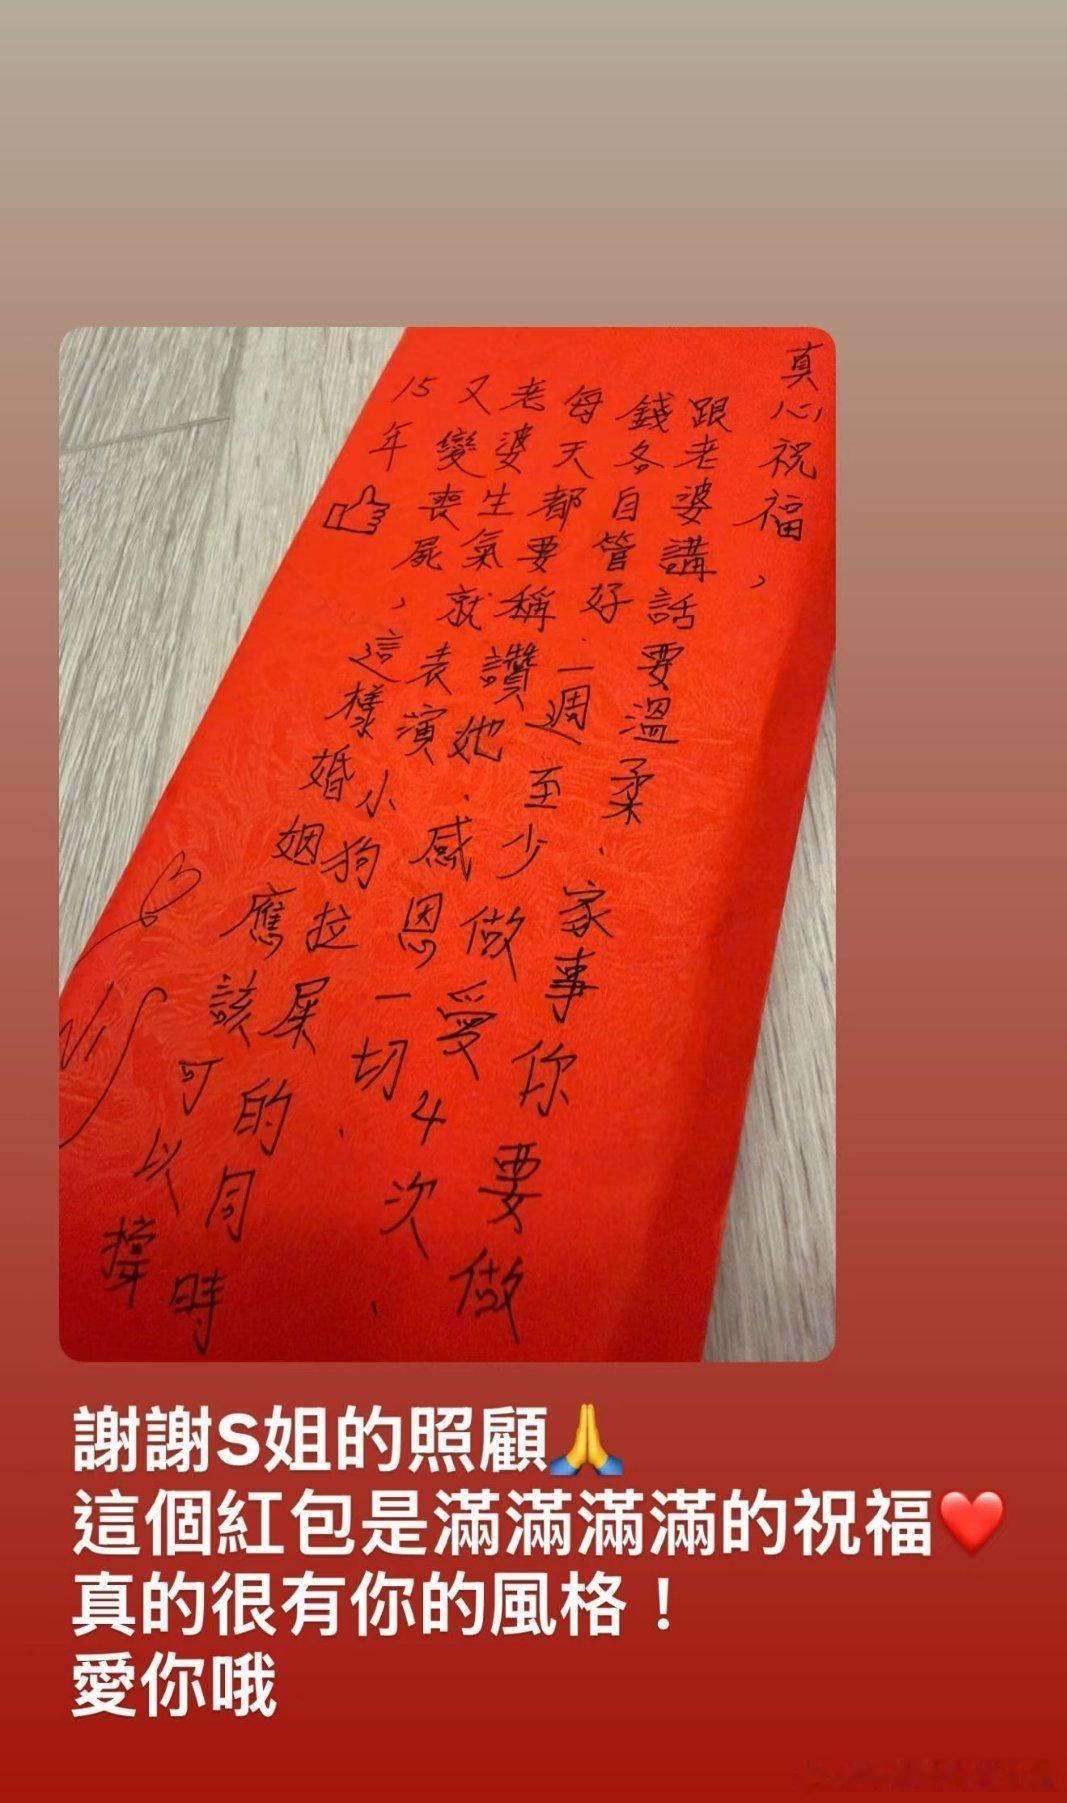 真心祝福，
跟老婆講話要溫柔、家事你要做
錢各自管好、一週至少做愛4次、
每天都要稱讚她、感恩一切、
老婆生氣就表演小狗拉屎的同時
又變喪屍，這樣婚姻應該可以撐
15年
謝謝S姐的照顧🙏
這個紅包是滿滿滿滿的祝福❤️
真的很有你的風格！
愛你哦